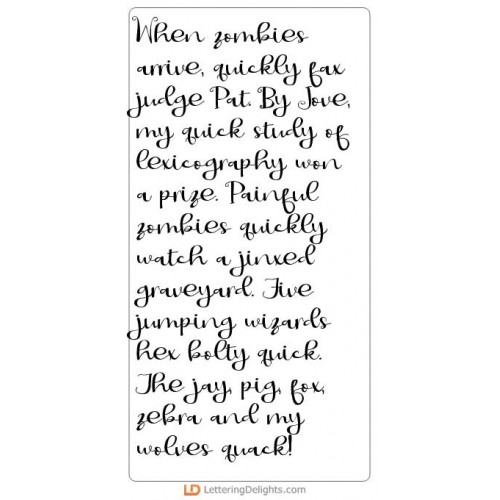 When zombies
arrive, quickly fax
judge Pat. By Jove,
my quick study of
lexicography won
a prize. Painful
zombies quickly
watch a jinxed
graveyard. Five
jumping wizards
hex bolty quick.
The jay, pig, fox,
zebra and my
wolves quack!
LD LetteringDelights.com